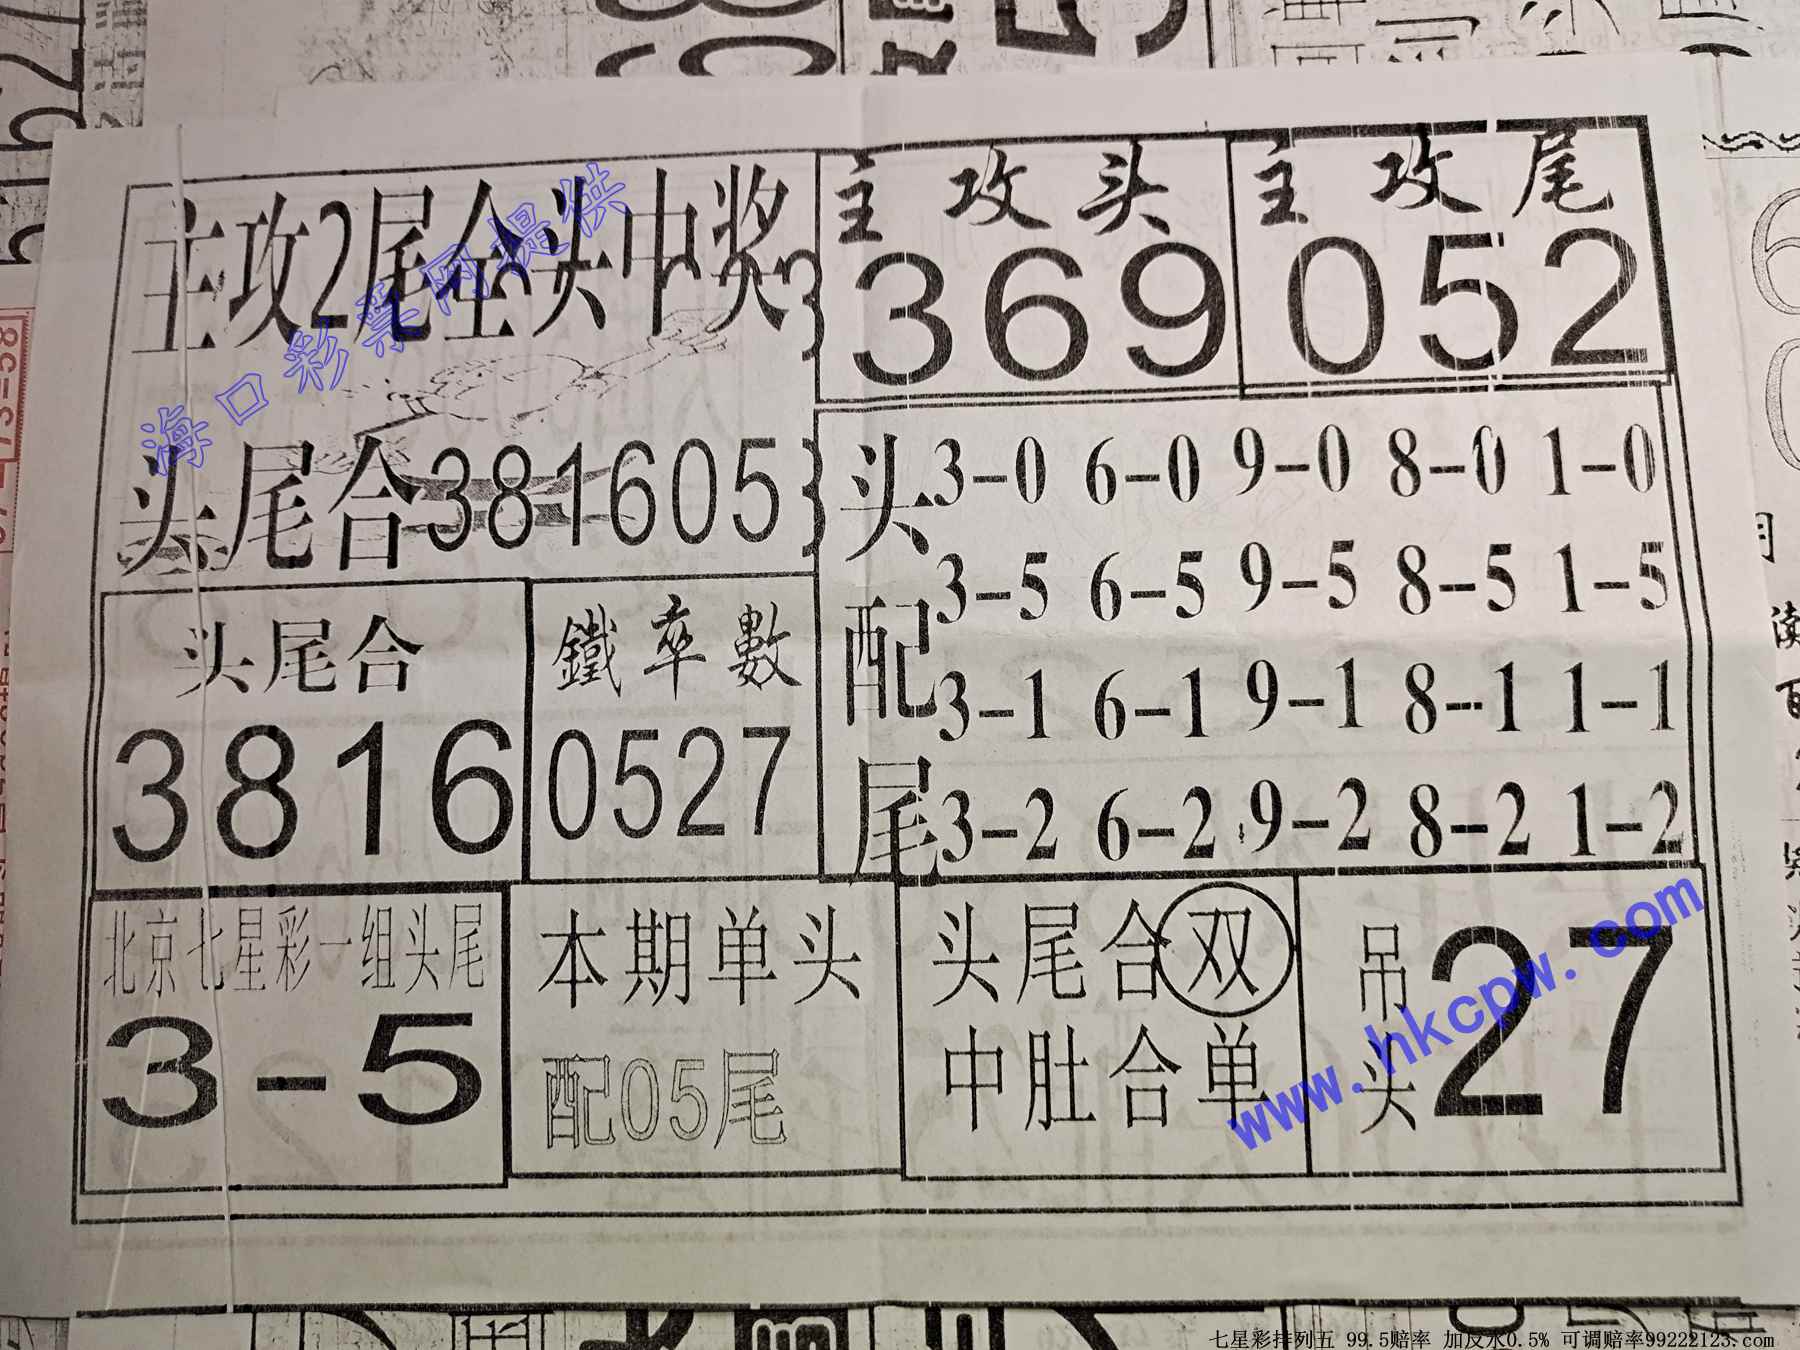 主攻2尾全头中奖
海口彩票网提供
头尾合381605
主攻头
369
主攻尾
052
头配尾
3-0 6-0 9-0 8-0 1-0
3-5 6-5 9-5 8-5 1-5
3-1 6-1 9-1 8-1 1-1
3-2 6-2 9-2 8-2 1-2
头尾合
3816
鐵率數
0527
北京七星彩一组头尾
3-5
本期单头
配05尾
头尾合双
中肚合单
吊头
27
www.hkcpw.com
七星彩排列五 99.5赔率 加反水0.5% 可调赔率99222123.com